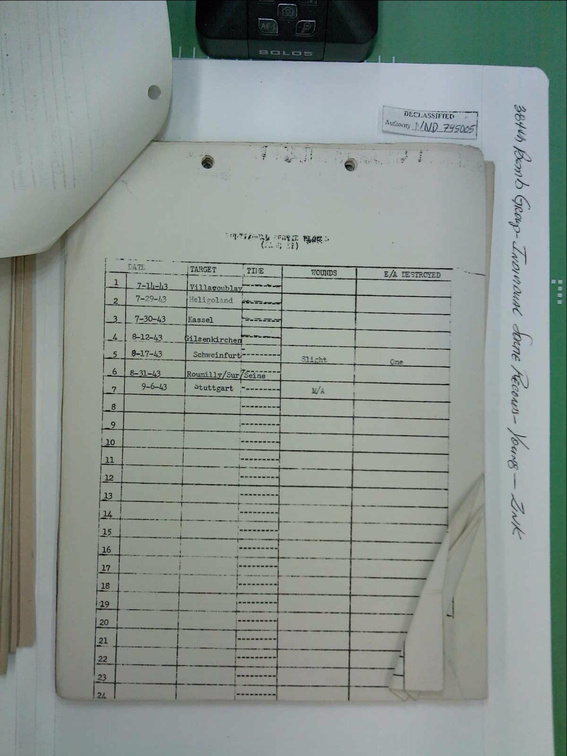 BOLOS
DECLASSIFIED
Authority NND 745005
384th Bomb Group - Individual Sortie Records - Young - Zink
DATE TARGET TIME WOUNDS E/A DESTROYED
1 7-14-43 Villacoublay
2 7-29-43 Heligoland
3 7-30-43 Kassel
4 8-12-43 Gilsenkirchen
5 8-17-43 Schweinfurt Slight One
6 8-31-43 Roumilly/Sur/Seine
7 9-6-43 Stuttgart
8
9
10
11
12
13
14
15
16
17
18
19
20
21
22
23
24